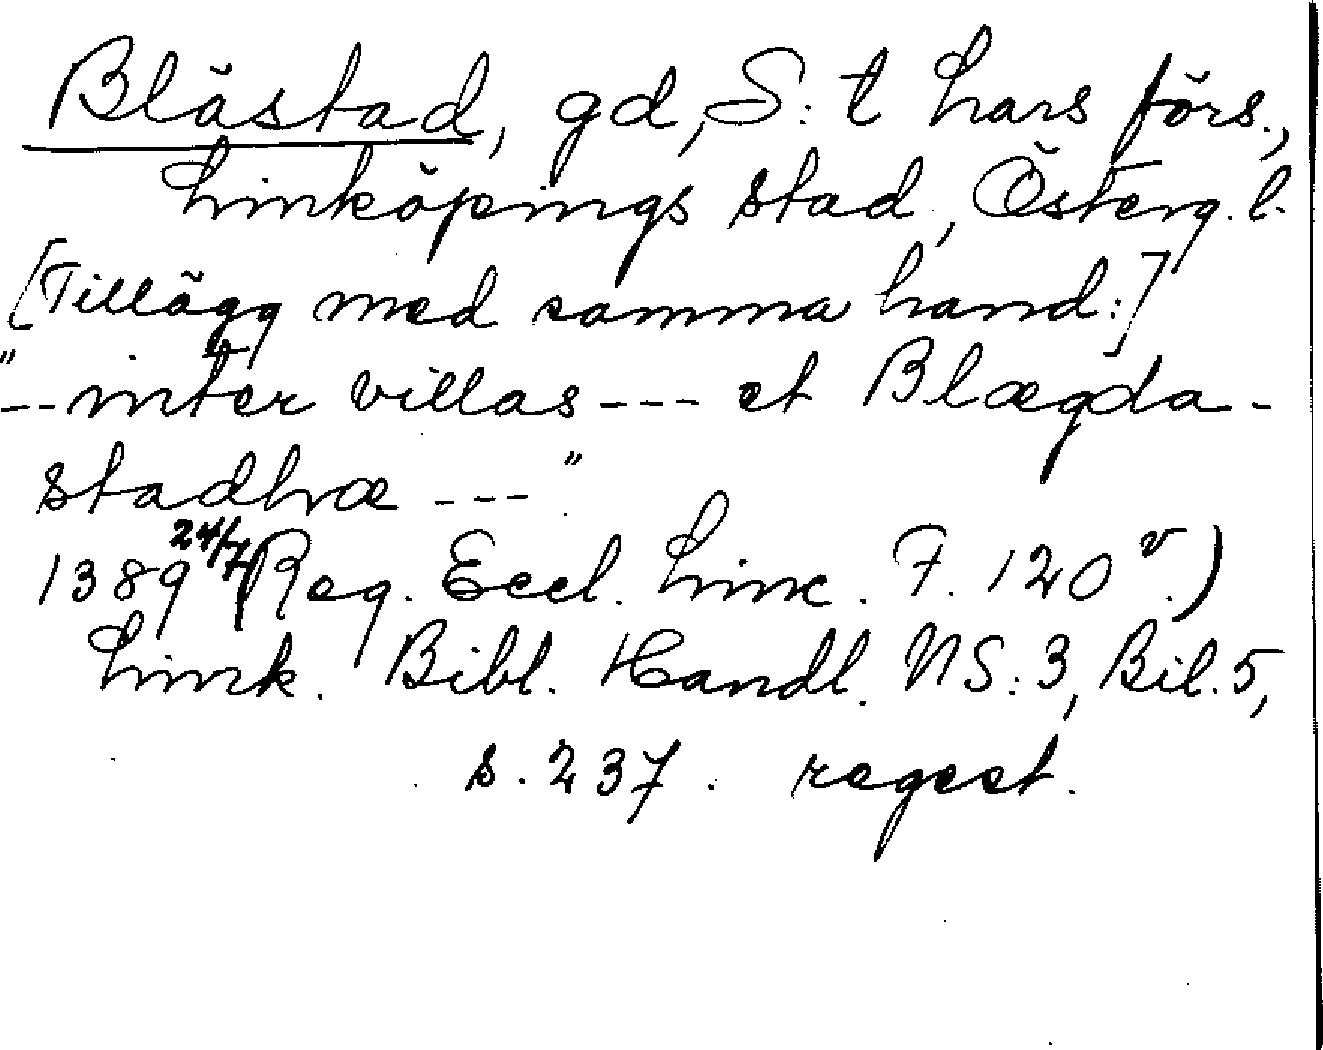 Blästad, gd, S:t Lars förs.,
Linköpings stad, Österg. l.
[Tillägg med samma hand:]
"
-- inter villas --- et Blægda-
stadhræ --- "
1389 24/7 (Reg. Eccl. Linc. F. 120 v.)
Link. Bibl. Handl. NS:3, Bil. 5,
s. 237. regest.